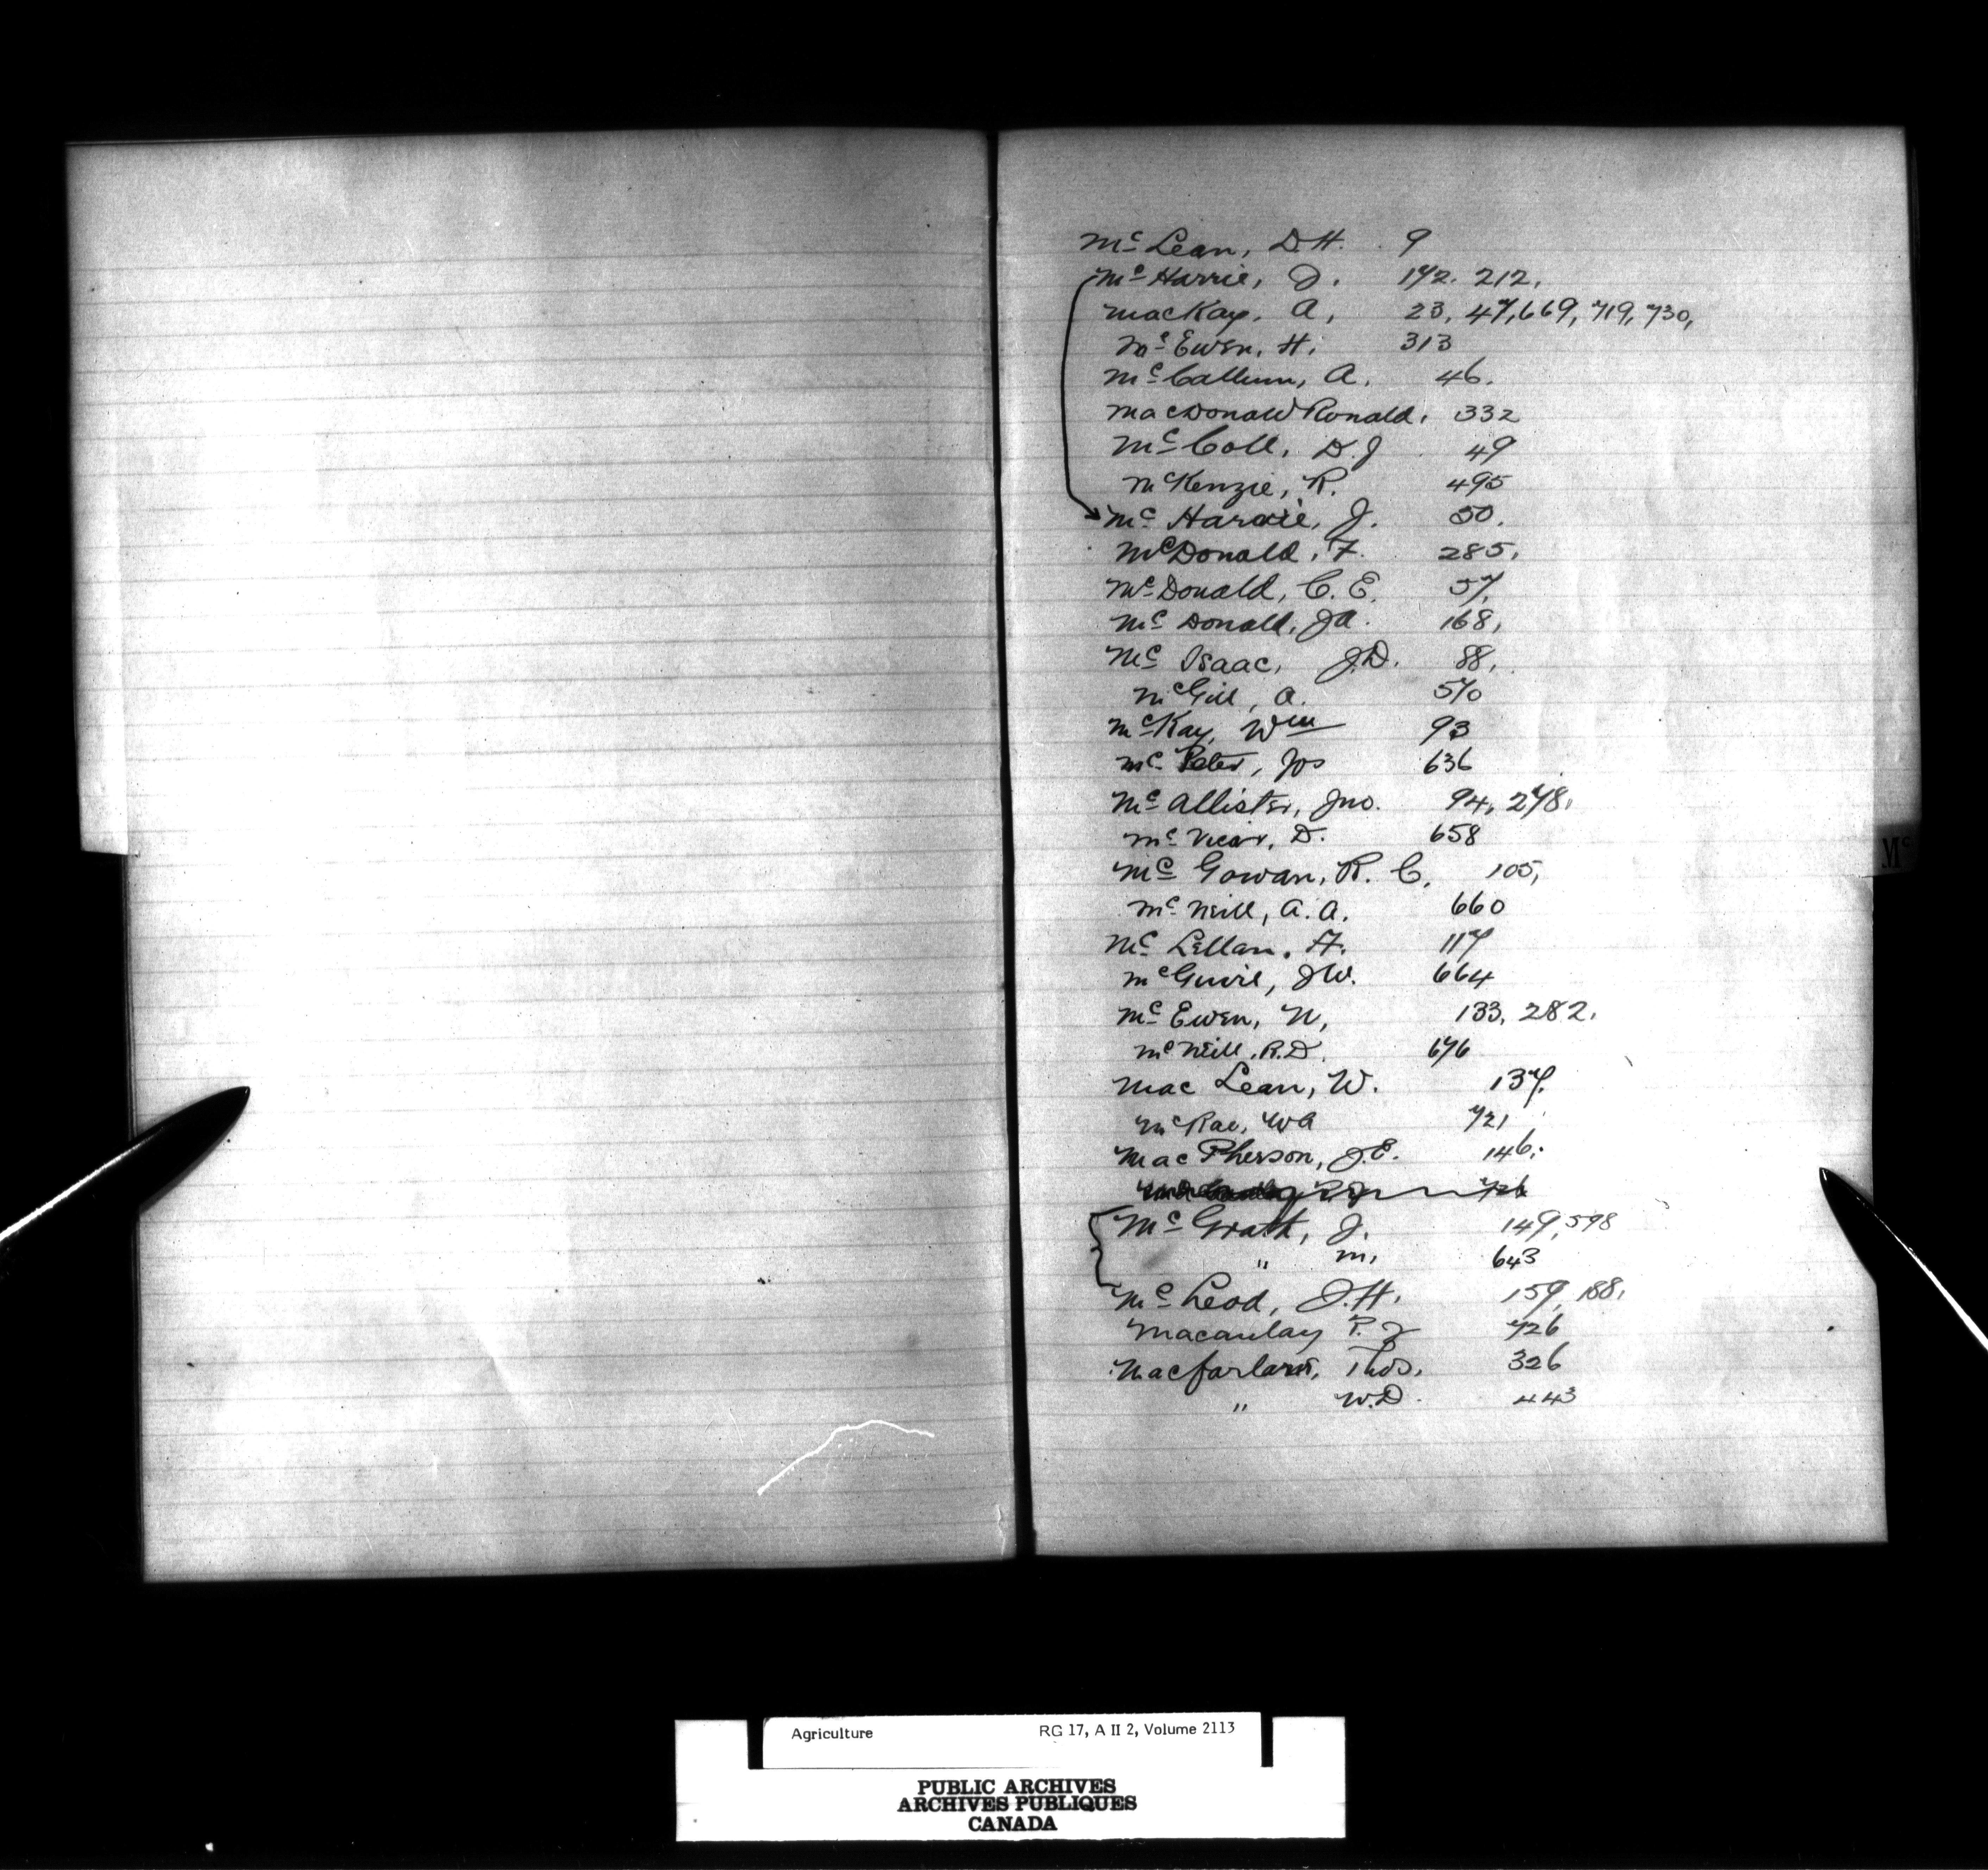 Mc Lean, D.H. 9
Mc Harrie, J. 172. 212,
MacKay, A, 23, 47, 669, 719, 730,
Mc Ewen, H. 313
Mc Callum, A. 46.
MacDonald Ronald, 332
Mc Coll, D.J 49
McKenzie, R. 495
Mc Hardie, J. 50.
McDonald, F. 285,
McDonald, C. E. 57,
Mc Donald, JA. 168,
Mc Isaac, J.D. 88,
McGill, A. 570
McKay, Wm 93
Mc Peter, Jos 636
Mc Allister, Jno. 94, 278,
Mc Vicar, D. 658
Mc Gowan, R. C. 105,
Mc Neill, A. A. 660
Mc Lellan, H. 117
McGuire, JW. 664
Mc Ewen, N, 133, 282,
McNeill, R.D. 676
Mac Lean, W. 137,
McRae, WA 721
Mac Pherson, J.E. 146,
726
Mc Grath, J. 149, 598
" M, 643
Mc Leod, J.H. 159, 188,
Macaulay P. J 726
Macfarlane, Thos, 326
" W.D. 443
Mc
Agriculture RG 17, A II 2, Volume 2113
PUBLIC ARCHIVES
ARCHIVES PUBLIQUES
CANADA